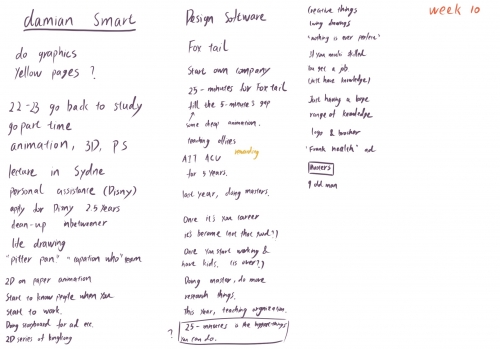 damian Smart
do graphics
Yellow pages ?
22-23 go back to study
go part time
animation, 3D, PS
lecture in Sydne
personal assistance (Disny)
apty for Disny 2.5 years
clean-up inbetweener
life drawing
"pitter pan"
2D on paper animation
Start to know people when you
start to work.
Doing storyboard for ad etc.
2D series of kingkong
Design Software
Fox tail
Start own company
25-minutes for Foxtail
fill the 5-minutes gap
some cheap animation.
teaching offices
AIT ACU
for 5 years.
last year, doing masters.
Once it's your career
it's become less that
Once you start working &
have kids. (is over?)
Doing master, do more
research things.
This year, teaching organization.
? 25-minutes is the things
you can do.
Creative things
long drawings
"nothing is ever perfect"
If you much skilled
get a job
(just have knowledge)
Just having a large
range of knowledge
logo & brocher
"Frank Health" ad.
Masters
odd man
week 10